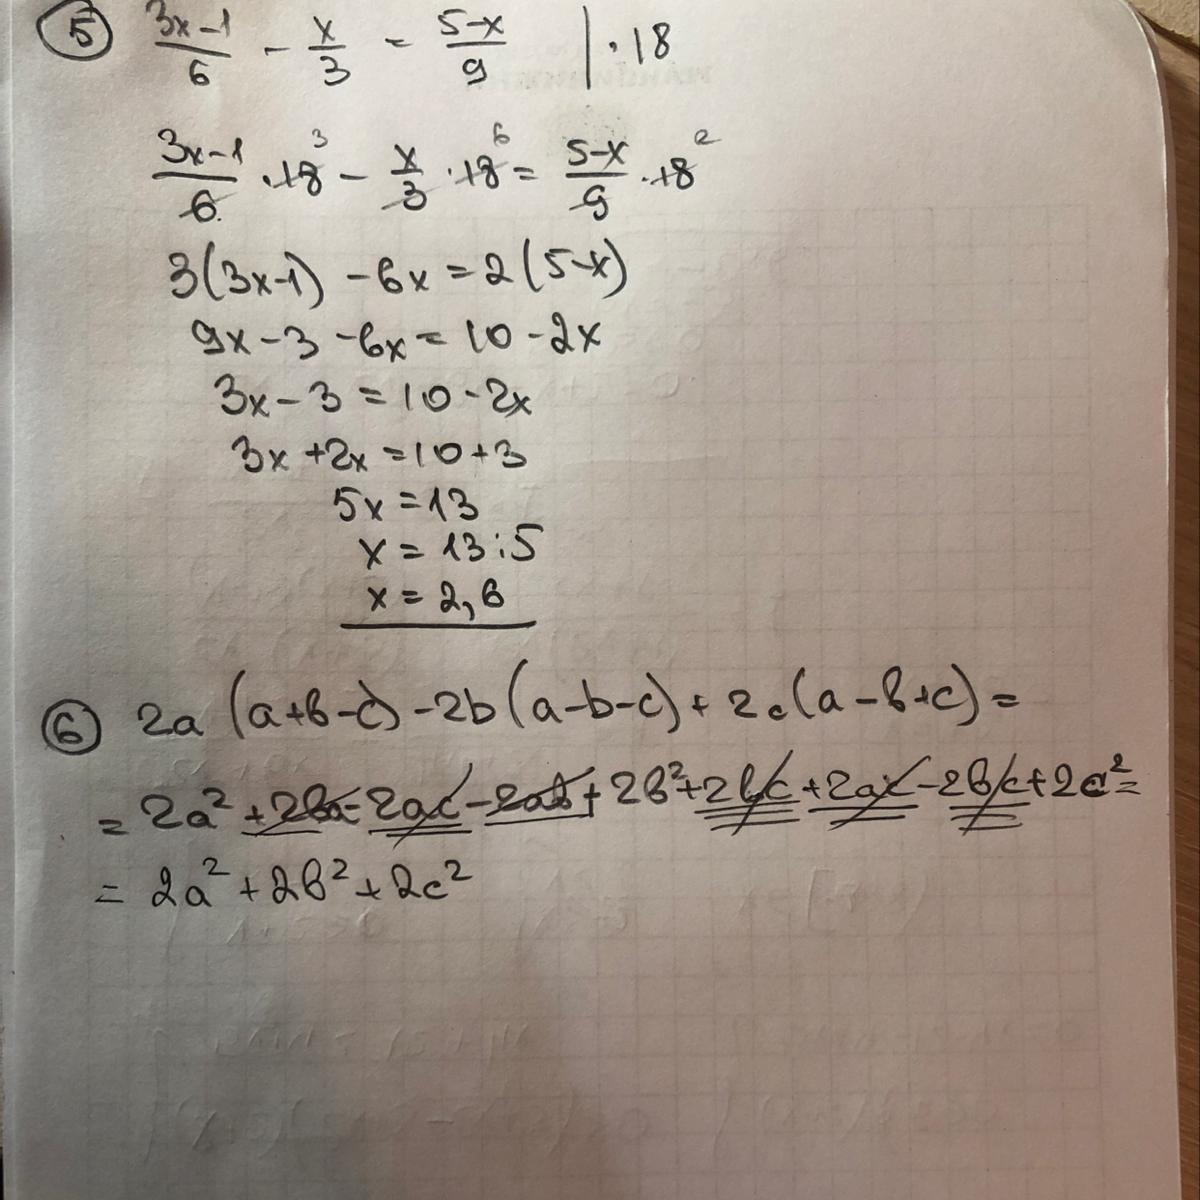 5 (3x-1)/6 - x/3 = (5-x)/9 | · 18
(3x-1)/6 · 18 3 - x/3 · 18 6 = (5-x)/9 · 18 2
3(3x-1) - 6x = 2(5-x)
9x - 3 - 6x = 10 - 2x
3x - 3 = 10 - 2x
3x + 2x = 10 + 3
5x = 13
x = 13 : 5
x = 2,6
6 2a (a+b-c) - 2b (a-b-c) + 2c (a-b+c) =
= 2a² + 2ba - 2ac - 2ab + 2b² + 2bc + 2ac - 2bc + 2c² =
= 2a² + 2b² + 2c²